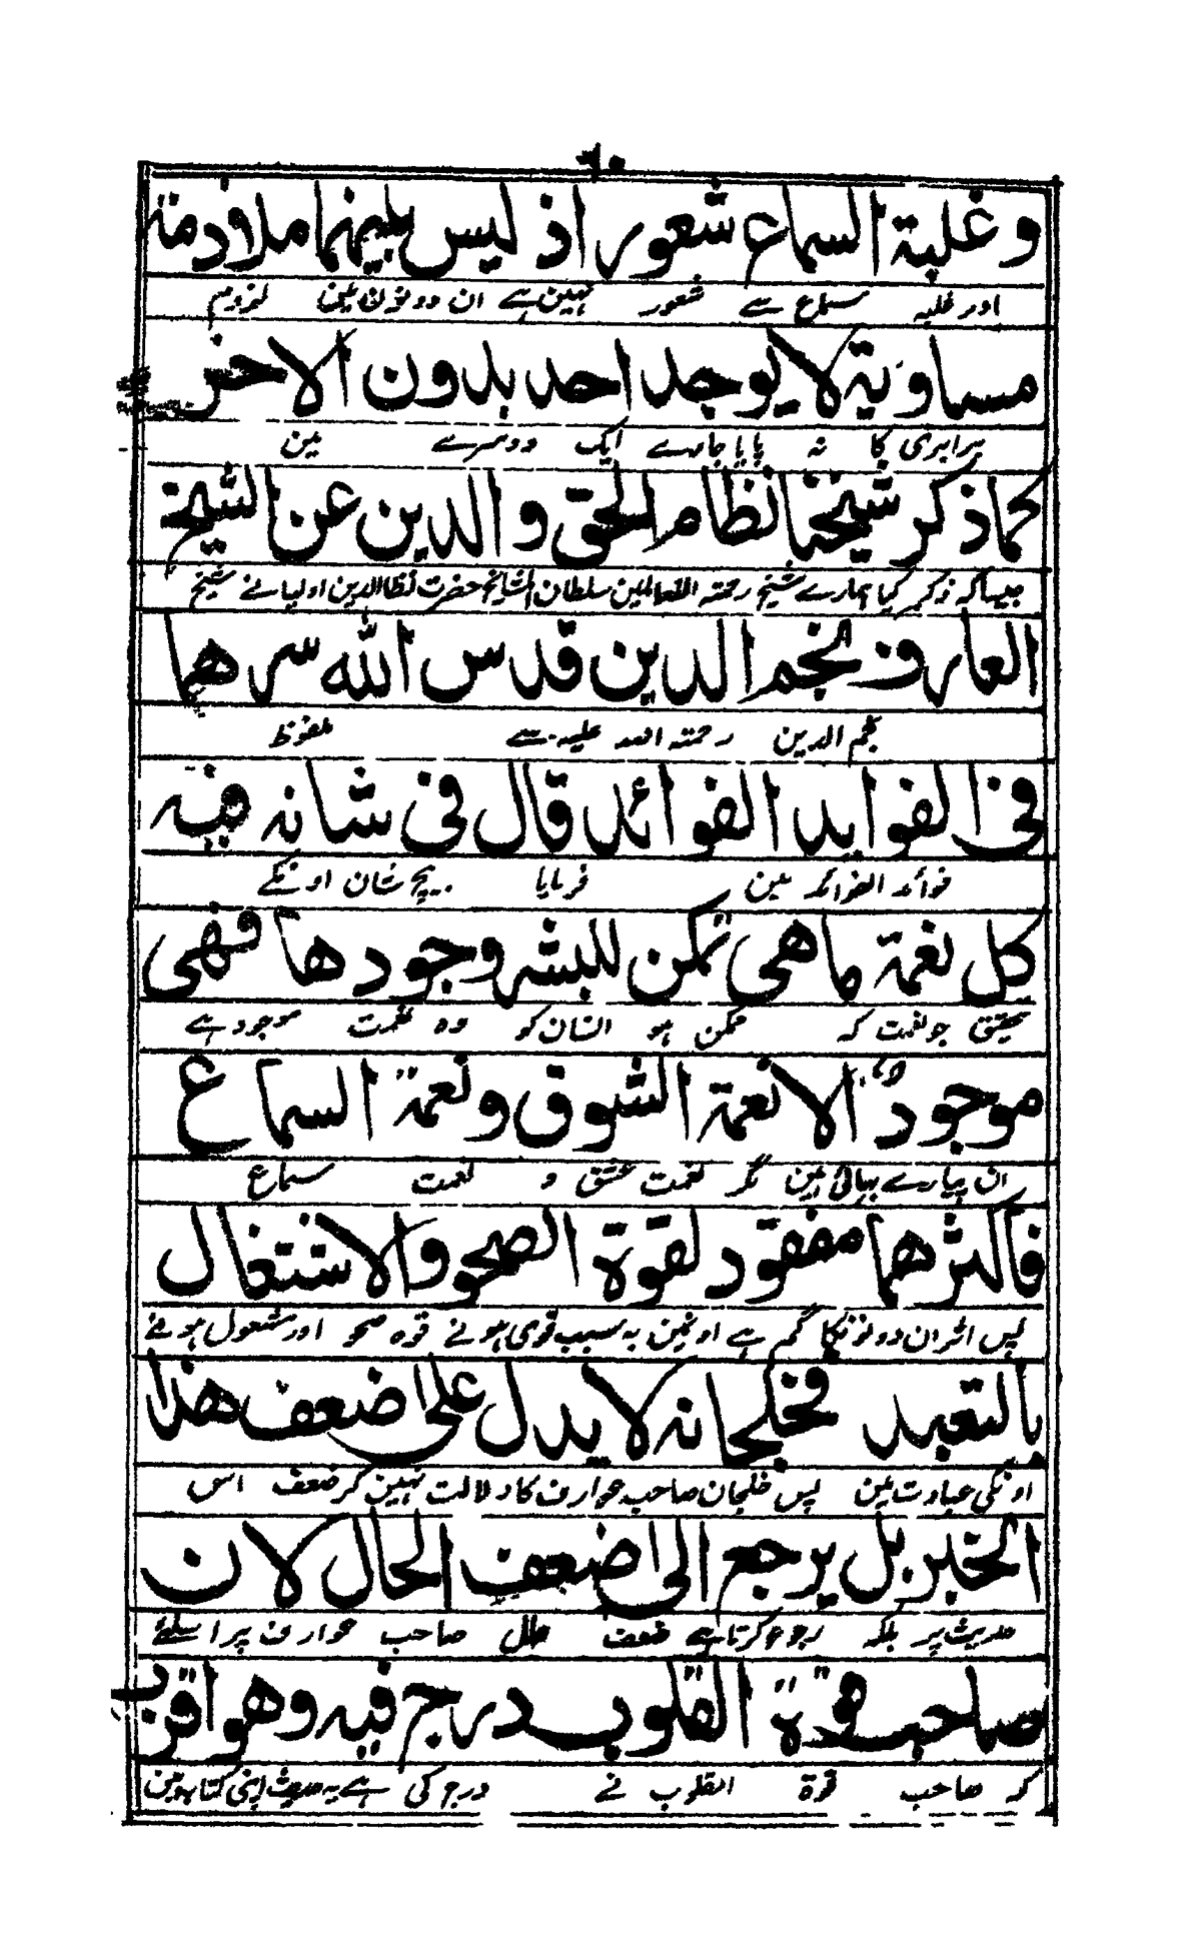 ٦٠
وغلبة السماع شعور اذ ليس بينهما ملازمة
اور غلبہ سماع سے شعور نہین ہے ان دونون مین لزوم
مساوية لا يوجد احد بدون الاخر
برابری کا نہ پایا جاوے ایک دوسرے مین
كما ذكر شيخنا نظام الحق والدين عن الشيخ
جیسا کہ ذکر کیا ہمارے شیخ رحمتہ اللعالمین سلطان المشائخ حضرت نظام الدین اولیا نے شیخ
العارف نجم الدين قدس الله سرهما
نجم الدین رحمتہ اللہ علیہ سے ملفوظ
فى الفوايد الفوائد قال فى شانه فيه
فوائد الفوائد مین فرمایا بیچ شان اونکے
كل نعمة ماهى تمكن للبشر وجودها فهى
تحقیق جو نعمت کہ ممکن ہو انسان کو وہ نعمت موجود ہے
موجودة الا نعمة الشوق ونعمة السماع
ان پیارے بھائی مین مگر نعمت عشق و نعمت سماع
فاكثرهما مفقود لقوة الصحو والاشتغال
پس اکثر ان دونونکا گم ہے اونمین بہ سبب قوی ہونے قوہ صحو اور مشغول ہونے
بالتعبد فخلجانه لا يدل على ضعف هذا
اونکی عبادت مین پس خلجان صاحب عوارف کا دلالت نہین کر ضعف اس
الخبر بل يرجع الى ضعف الحال لان
حدیث پر بلکہ رجوع کرتا ہے ضعف حال صاحب عوارف پر اسلئے
صاحب قوة القلوب درج فيه وهو اقرب
کہ صاحب قوة القلوب نے درج کی ہے یہ حدیث اپنی کتاب مین